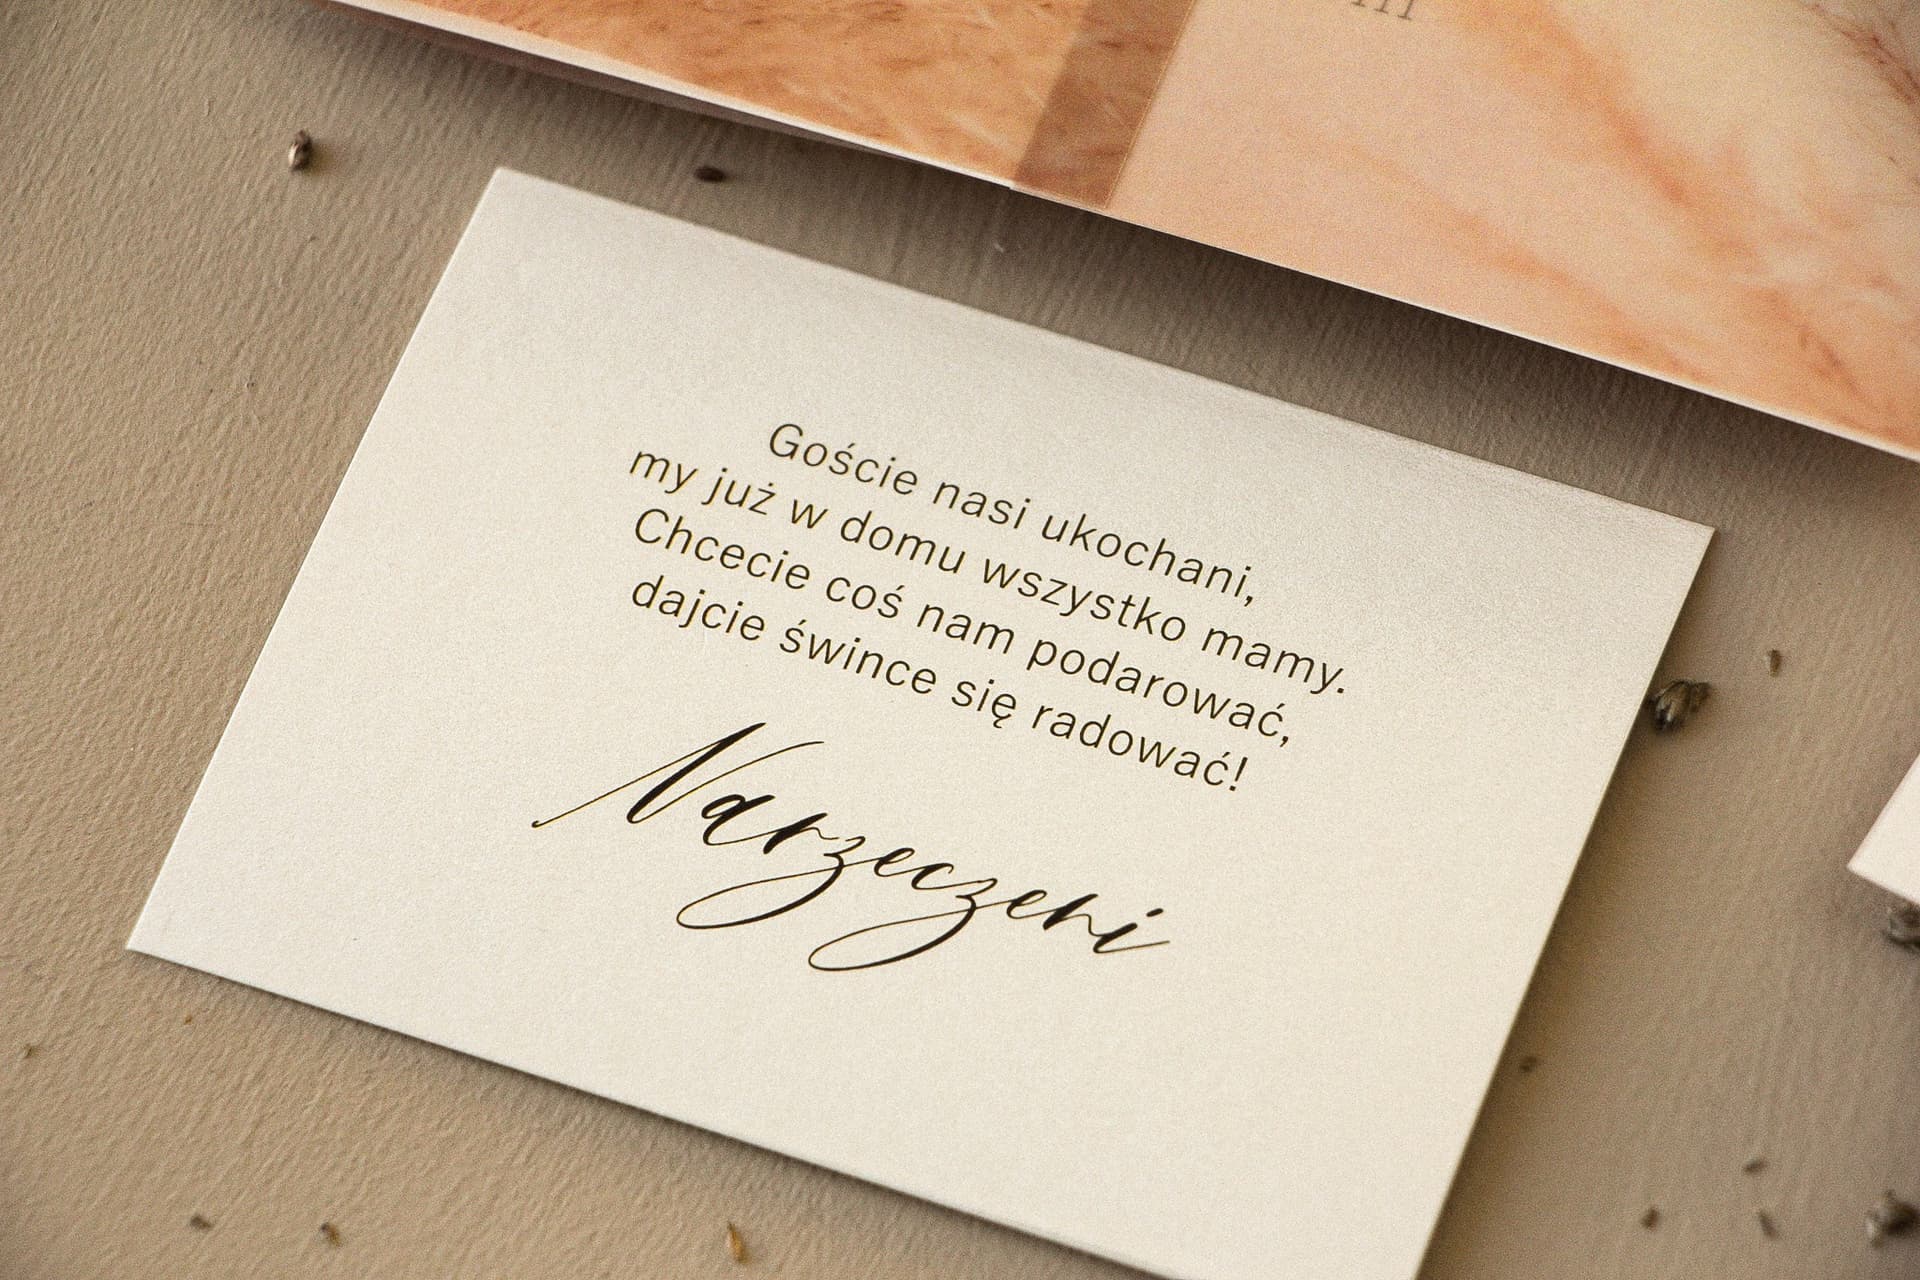 Goście nasi ukochani,
my już w domu wszystko mamy.
Chcecie coś nam podarować,
dajcie śwince się radować!
Narzeczeni